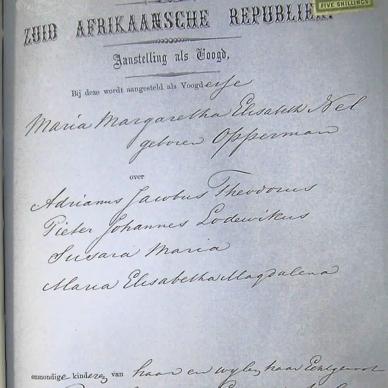 ZUID AFRIKAANSCHE REPUBLIEK.
FIVE SHILLINGS
Aanstelling als Voogd,
Bij deze wordt aangesteld als Voogdesse
Maria Margaretha Elisabeth Nel
geboren Opperman
over
Adrianus Jacobus Theodorus
Pieter Johannes Lodewikus
Susara Maria
Maria Elisabetha Magdalena
onmondige kinderen van haar en wylen haar Echtgenoot